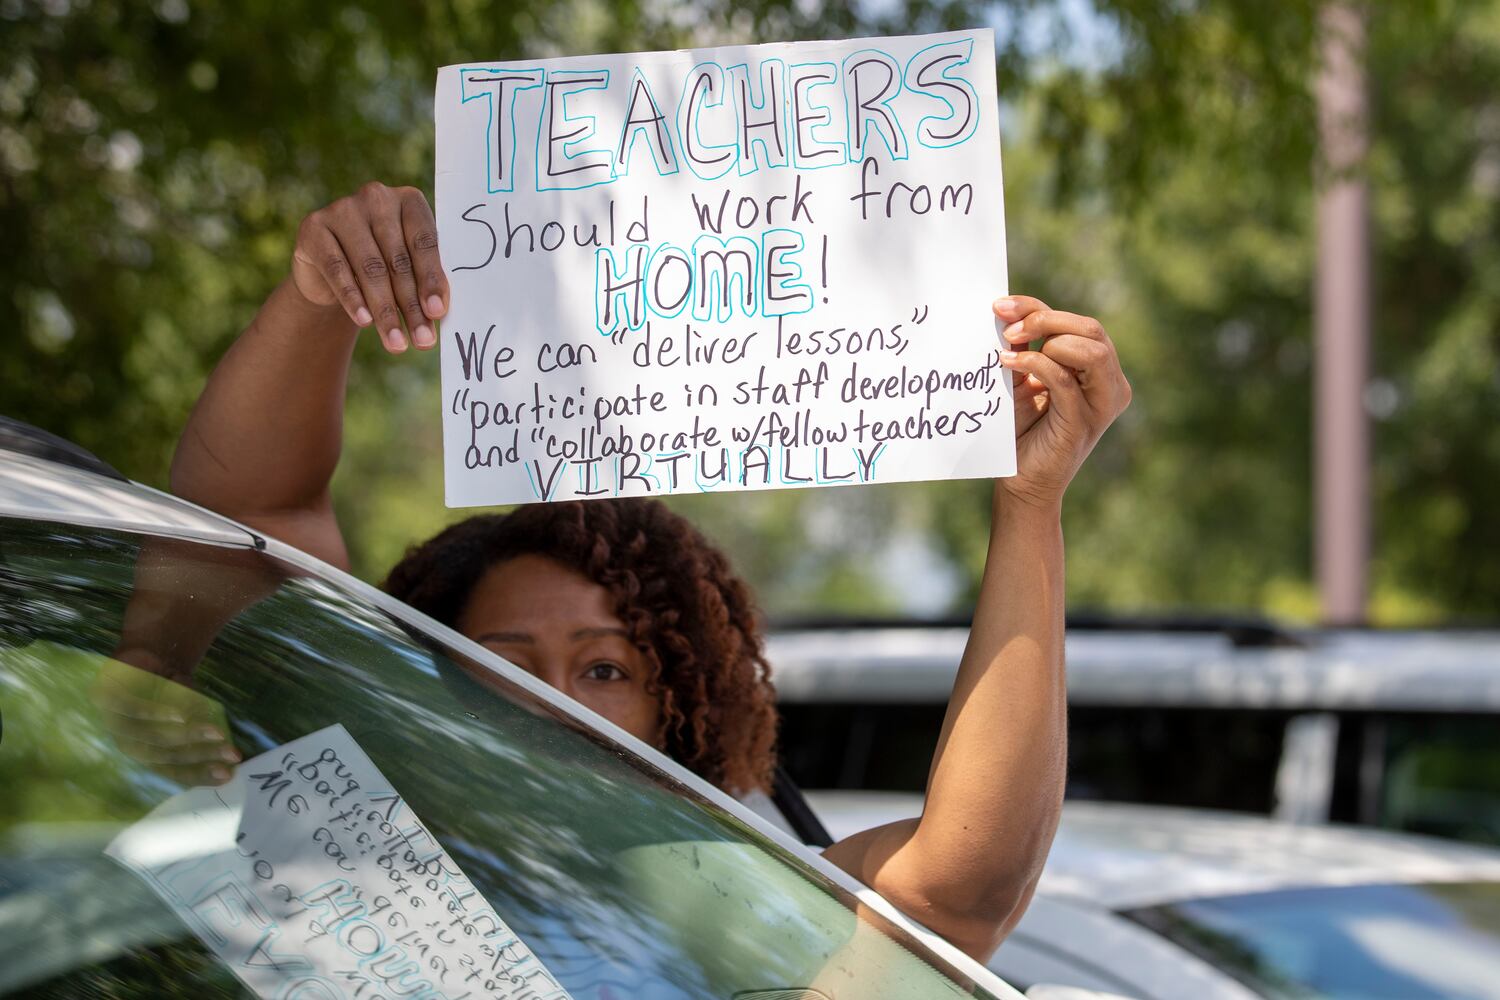 TEACHERS
Should work from
HOME!
We can "deliver lessons,"
"participate in staff development,"
and "collaborate w/fellow teachers"
VIRTUALLY